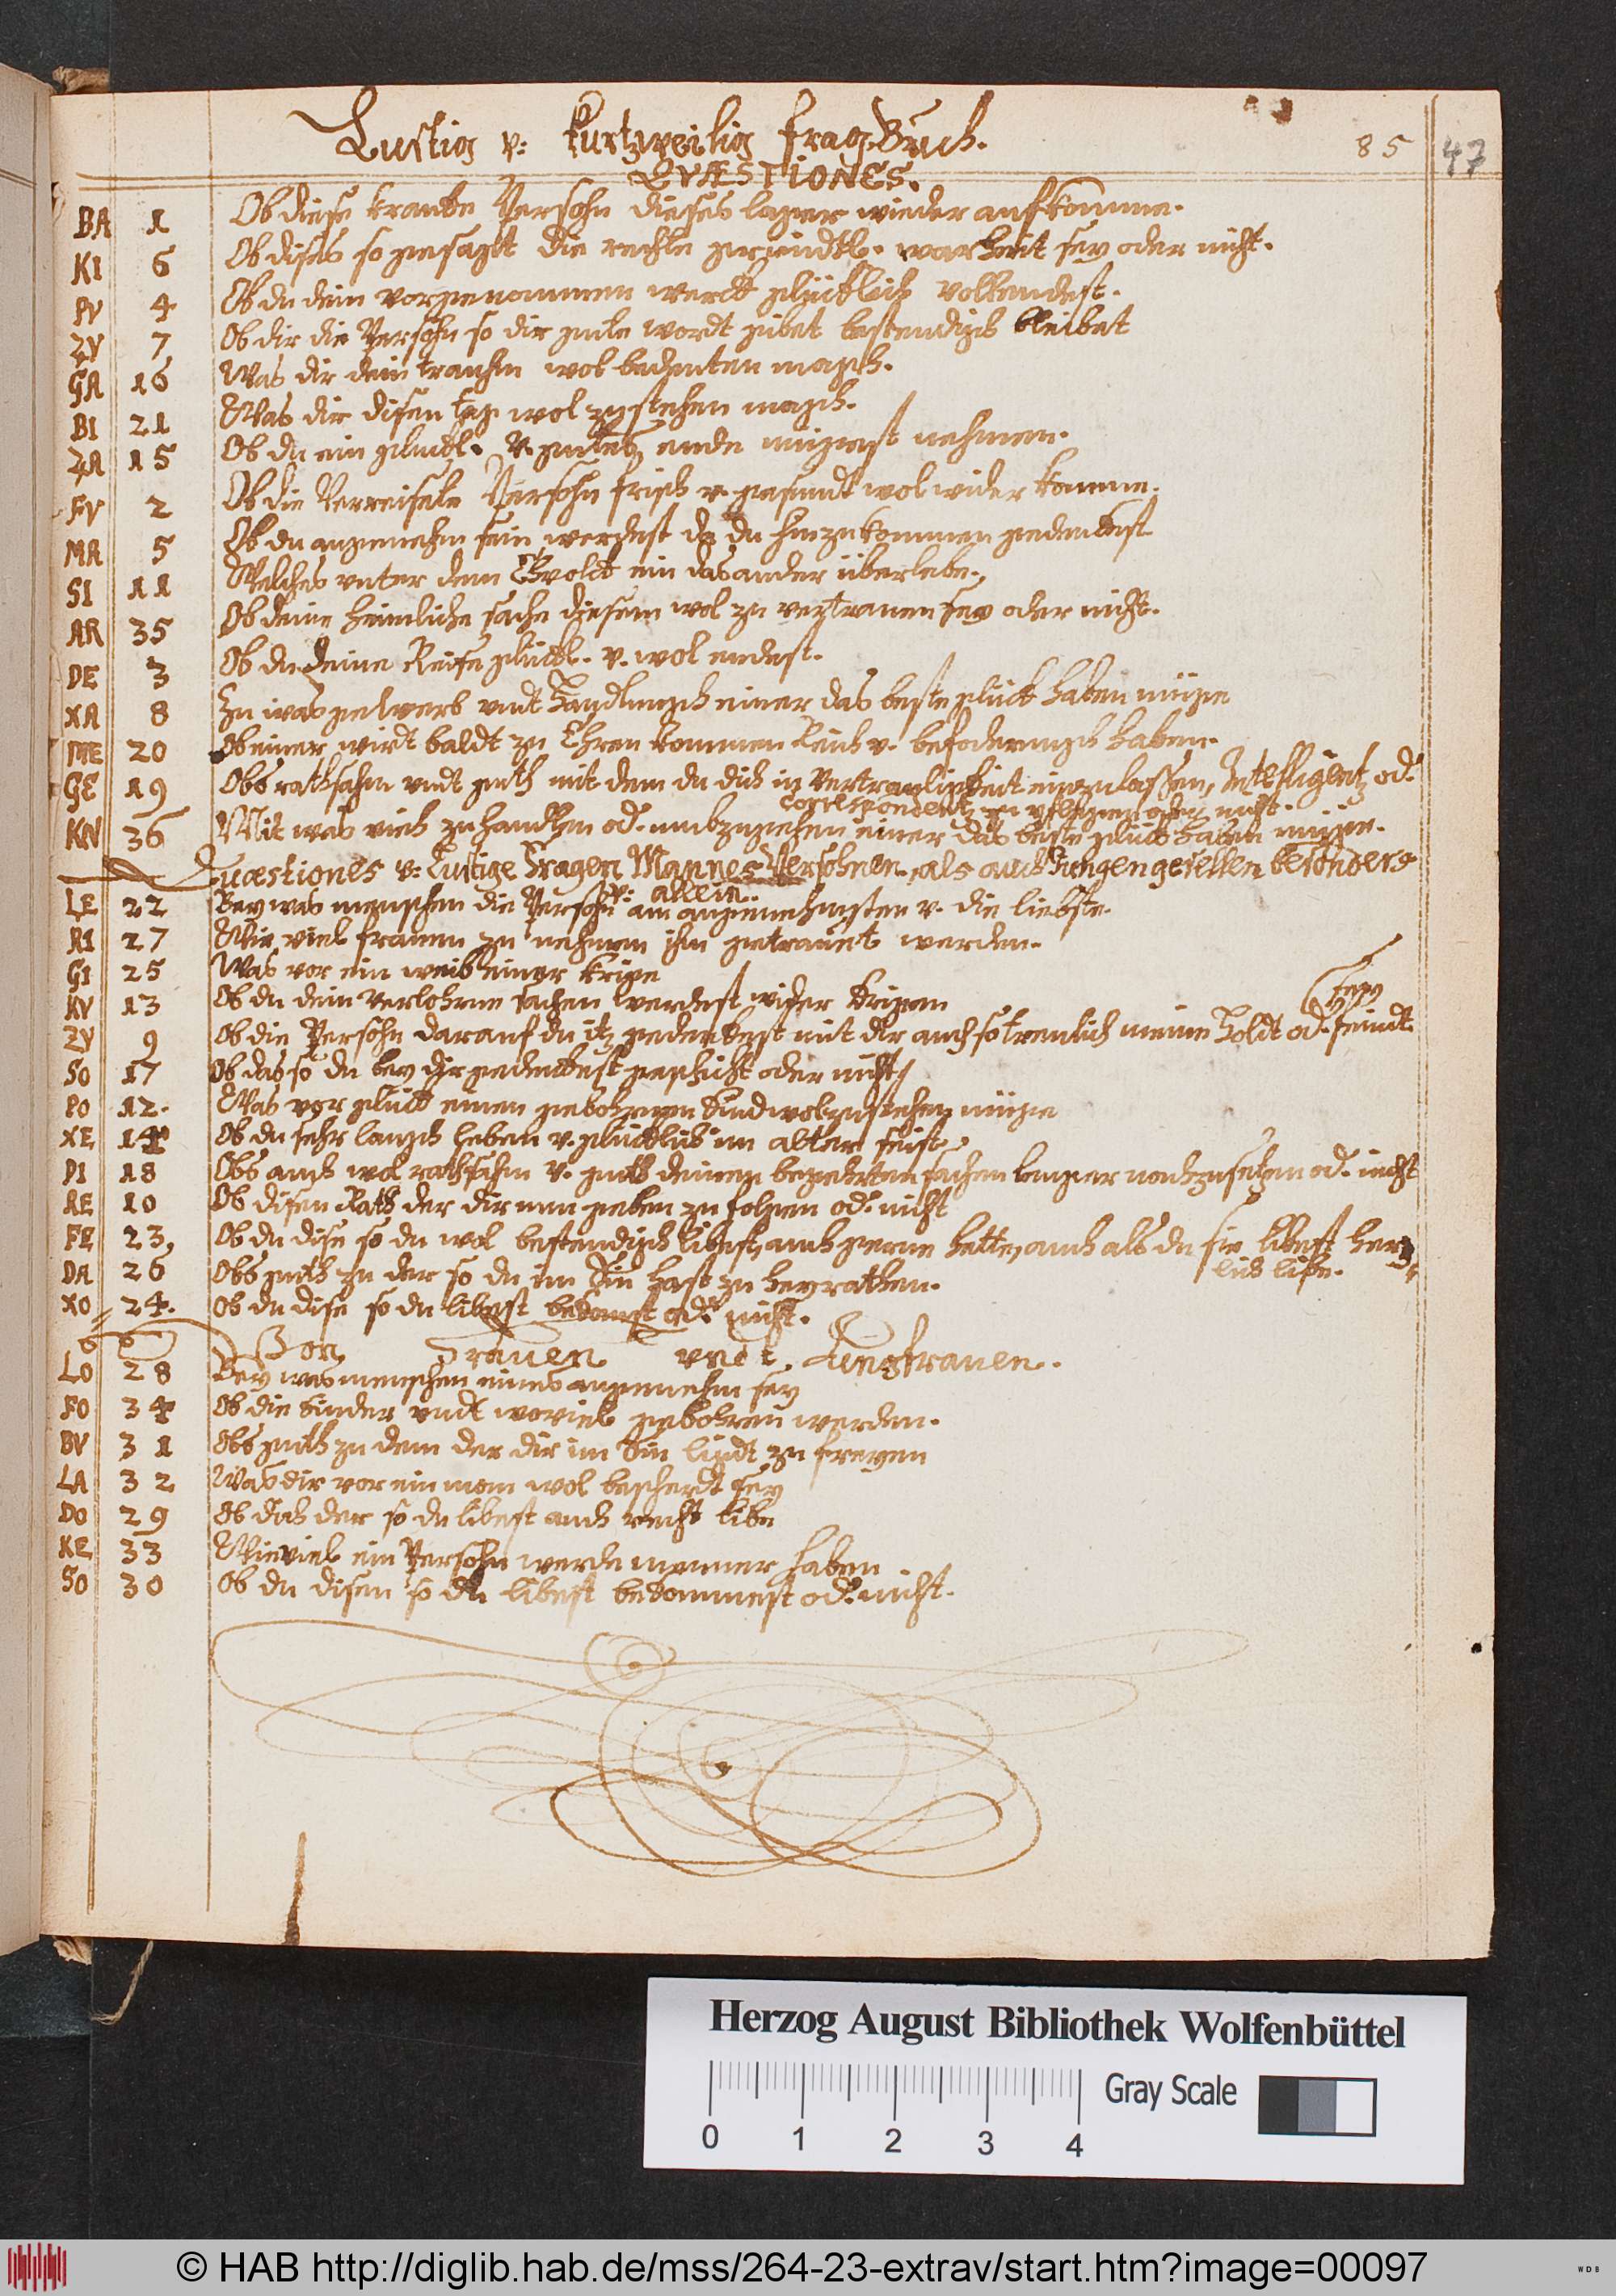 Lustig v: kurtzweilig frag Buch.
85 47
QVÆSTIONES.
BA 1 Ob diese krancke Persohn dieses lager wieder auf komme.
KI 6 Ob dises so gesagtt die rechte gründtl. warheit sey oder nicht.
PV 4 Ob du dein vorgenommen werck glücklich vollendest.
ZV 7 Ob dir die Persohn so dir gute wordt gibet bestendigh bleibet
GA 16 Was dir dein traum wol bedeuten magh.
BI 21 Was dir disen tag wol zustehen magh.
ZA 15 Ob du ein glückl. v. gutes ende mügest nehmen.
FV 2 Ob die Verreisete Persohn frisch v. gesundt wol wider komme.
MA 5 Ob du angenehm sein werdest da du hin zu kommen gedenckest
SI 11 Welches vnter dem Ehvolck ein das ander überlebe.
AR 35 Ob deine heimliche sache diesem wol zu vertrauen sey oder nicht.
DE 3 Ob du deine Reise glückl. v. wol endest.
XA 8 Zu was gelwerb vndt handlungh einer das beste glück haben müge
ME 20 Ob einer wirdt baldt zu Ehren kommen Reich v. befoderungh haben.
GE 19 Obs rathsahm vndt guth mit dem du dich in Vertrauligkeit einzulassen, Intelligentz od.
correspondentz zu pflegen oder nicht.
KN 36 Mit was vieh zu handlen od. umbzugehen einer das beste glück haben müge.
Quæstiones v: Lustige Fragen Mannes Persohnen, als auch Jungengesellen besonders
allein.
LE 22 Bey was menschen die Persohn am angenehmsten v. die liebste.
RI 27 Wie viel frauen zu nehmen ihm getrauet werden.
GI 25 Was vor ein weib einer krige
KV 13 Ob du dein verlohrne sachen werdest wider krigen
sey
ZY 9 Ob die Persohn darauf du itz gedenckest mit dir auch so treulich meine holdt od. feindt
SO 17 Ob das so du bey dir gedenckest geschicht oder nicht
PO 12. Was vor glück einen gebohrnen Kind wol zustehen müge
XE 14 Ob du sehr langh leben v. glücklich im alter seist
PI 18 Obs auch wol rathsahm v. guth deinen begehrten sachen lenger nachzusetzen od. nicht
RE 10 Ob disen Rath der dir nun geben zu folgen od. nicht
FE 23, Ob du dise so du wol bestendigh libest, auch gerne hette, auch als du sie libest hertz
lich libe.
DA 26 Obs guth zu der so du im Sin hast zu heyrathen.
XO 24. Ob du dise so du libest bekomst od. nicht.
Von Frauen vndt Jungfrauen.
LO 28 Bey was menschen eines angenehm sey
FO 34 Ob die Kinder vndt wo viel gebohren werden.
BV 31 Obs guth zu dem der dir im Sin ligdt zu freyen
LA 32 Was dir vor ein man wol bescherdt sey
DO 29 Ob dich der so du libest auch recht libe
KE 33 Wieviel ein Persohn werde menner haben
SO 30 Ob du disen so du libest bekommest od. nicht.
Herzog August Bibliothek Wolfenbüttel
Gray Scale
0 1 2 3 4
© HAB http://diglib.hab.de/mss/264-23-extrav/start.htm?image=00097
WDB